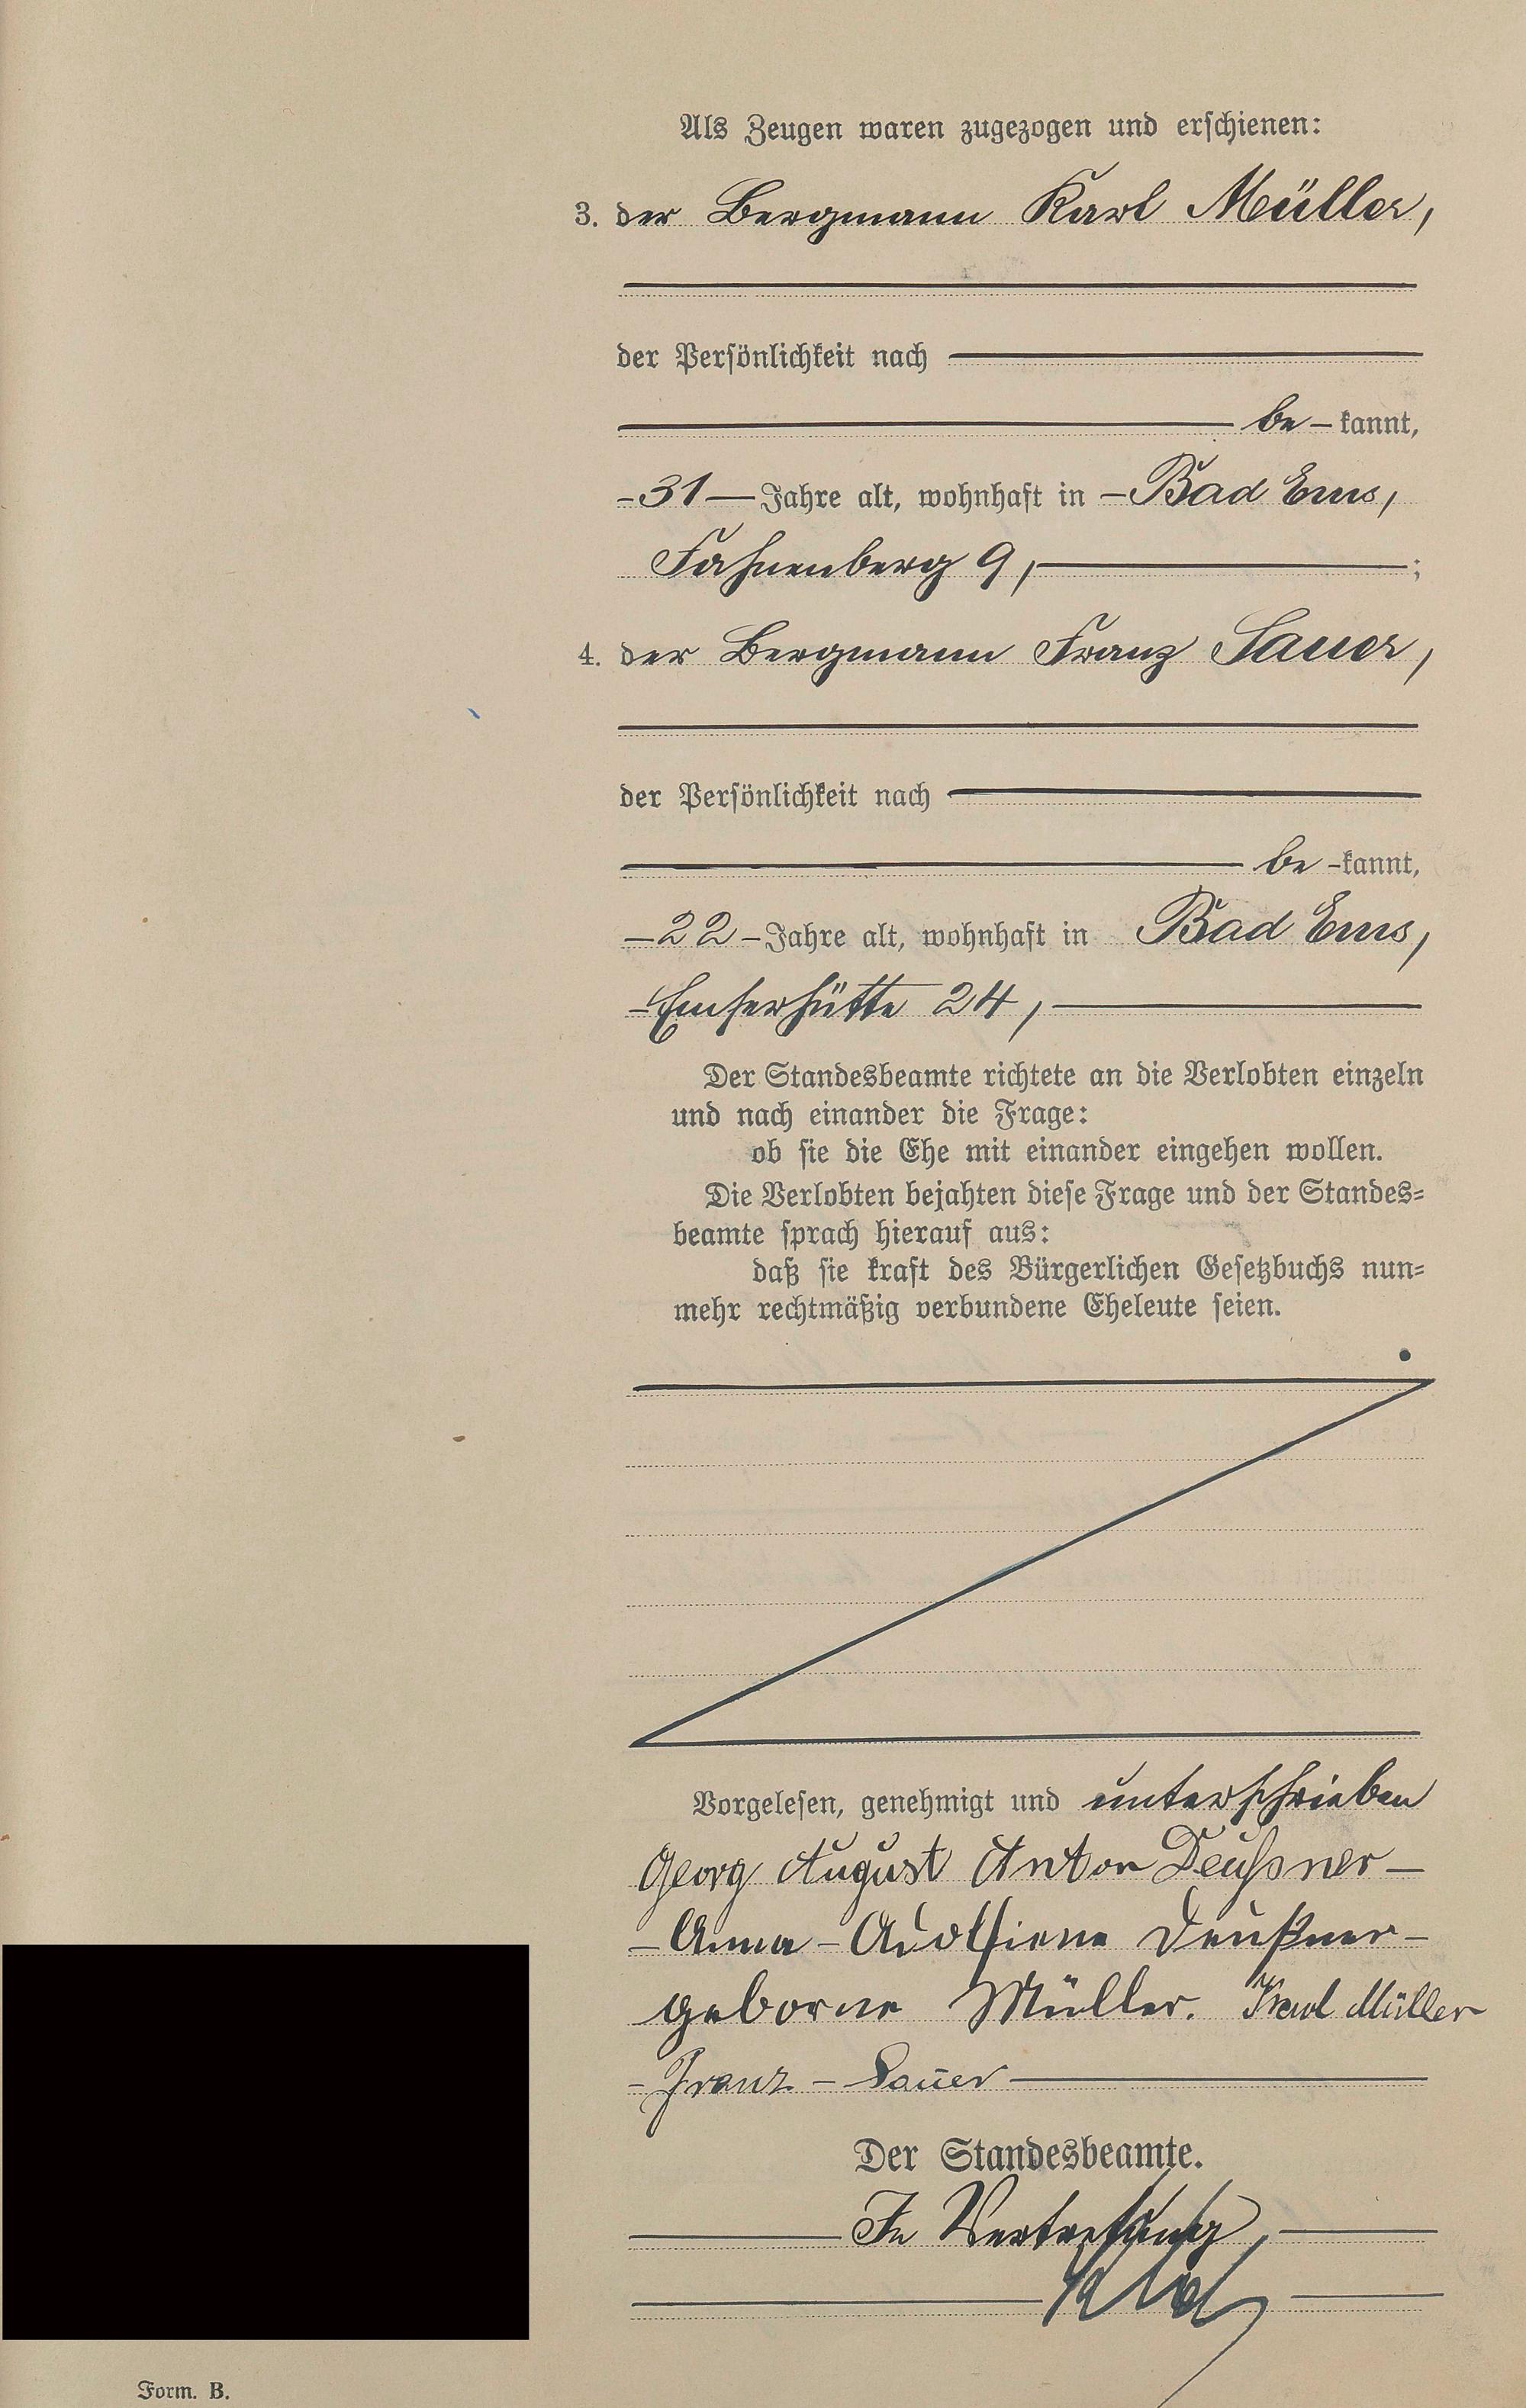 Als Zeugen waren zugezogen und erschienen:
3. der Bergmann Karl Müller,
der Persönlichkeit nach
be-kannt,
31 Jahre alt, wohnhaft in Bad Ems,
Fahnenberg 9, ;
4. der Bergmann Franz Sauer,
der Persönlichkeit nach
be-kannt,
22 Jahre alt, wohnhaft in Bad Ems,
Emserhütte 24,
Der Standesbeamte richtete an die Verlobten einzeln
und nach einander die Frage:
ob sie die Ehe mit einander eingehen wollen.
Die Verlobten bejahten diese Frage und der Standes-
beamte sprach hierauf aus:
daß sie kraft des Bürgerlichen Gesetzbuchs nun-
mehr rechtmäßig verbundene Eheleute seien.
Vorgelesen, genehmigt und unterschrieben
Georg August Anton Deußner
Anna Adolfiene Deußner
geborne Müller. Karl Müller
Franz Sauer
Der Standesbeamte.
In Vertretung
Form. B.